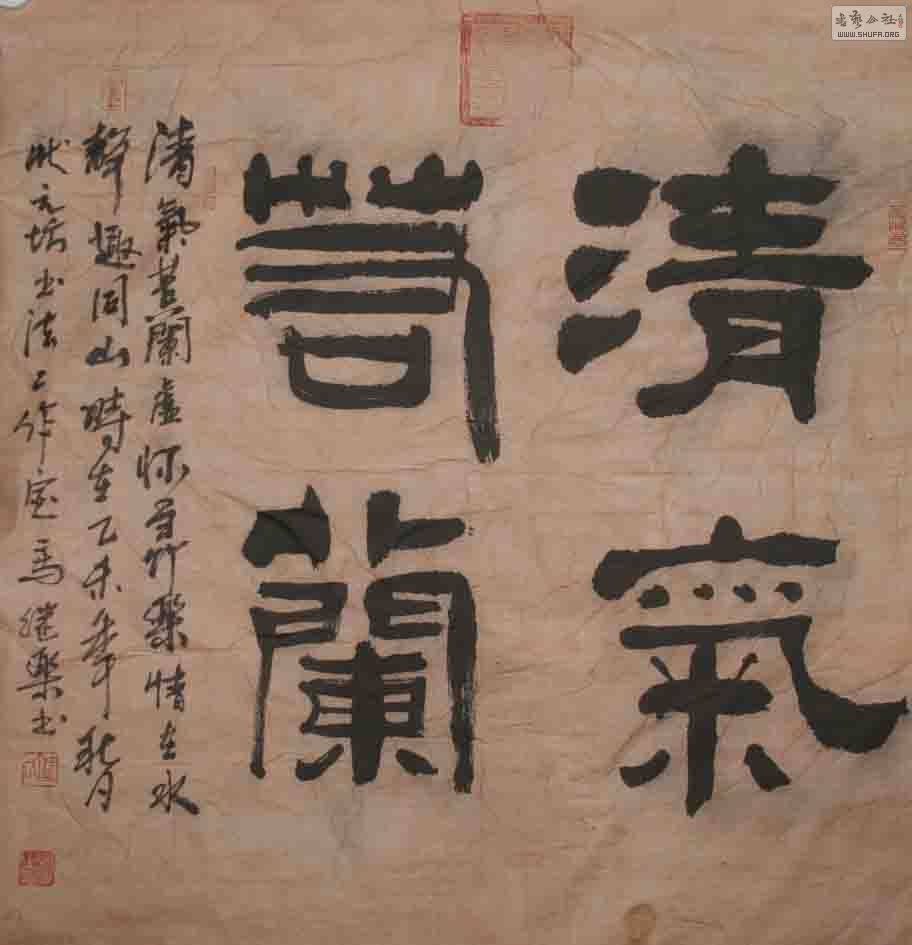 清氣
若蘭
清氣若蘭虛怀若竹樂情在水
靜趣同山時在乙未年秋月
状元坊书法工作室馬继樂书
书艺公社
WWW.SHUFA.ORG